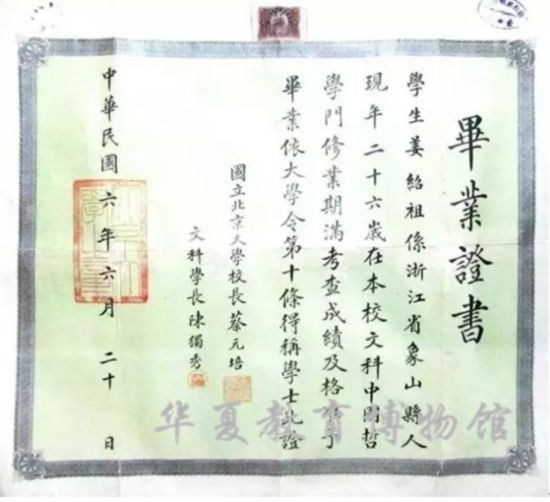 畢業證書
學生姜紹祖係浙江省象山縣人
現年二十六歲在本校文科中國哲
學門修業期滿考查成績及格准予
畢業依大學令第十條得稱學士此證
國立北京大學校長蔡元培
文科學長陳獨秀
中華民國六年六月二十日
华夏教育博物馆